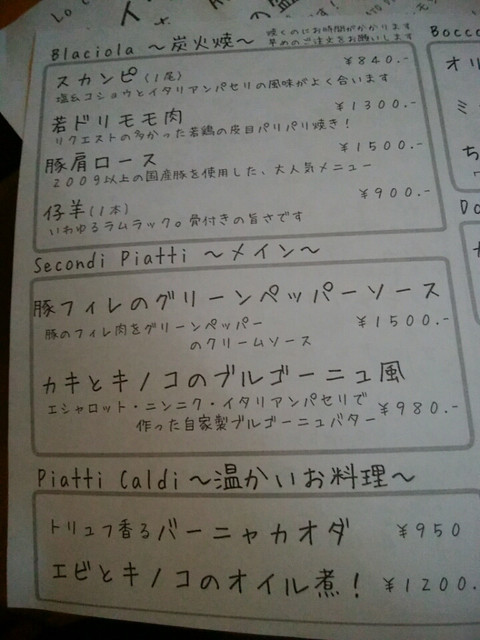 Blaciola ～炭火焼～
焼くのにお時間がかかります
早めのご注文をお願いします
スカンピ(1尾) ￥840.-
塩&コショウとイタリアンパセリの風味がよく合います
若ドリモモ肉 ￥1300.-
リクエストの多かった若鶏の皮目パリパリ焼き!
豚肩ロース ￥1500.-
200g以上の国産豚を使用した、大人気メニュー
仔羊(1本) ￥900.-
いわゆるラムラック。骨付きの旨さです
Secondi Piatti ～メイン～
豚フィレのグリーンペッパーソース
豚のフィレ肉をグリーンペッパー ￥1500.-
のクリームソース
カキとキノコのブルゴーニュ風
エシャロット・ニンニク・イタリアンパセリで ￥980.-
作った自家製ブルゴーニュバター
Piatti Caldi ～温かいお料理～
トリュフ香るバーニャカオダ ￥950
エビとキノコのオイル煮! ￥1200.
Bocco
オリ
ミ
ち
Do